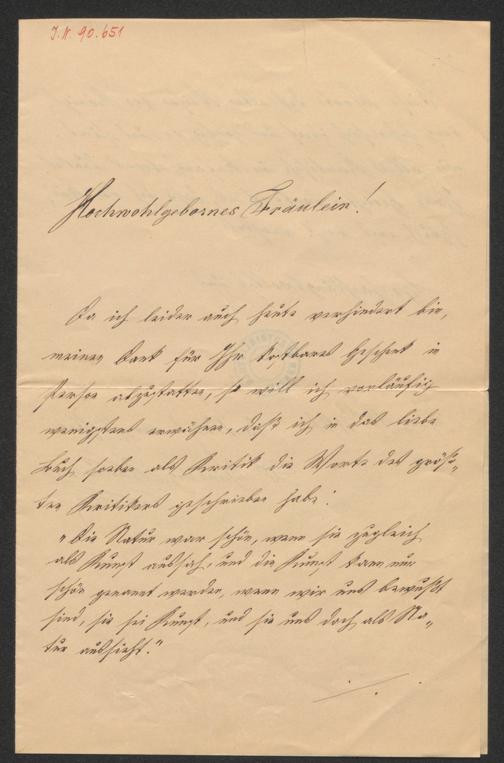 J.N. 90.651
Hochwohlgebornes Fräulein!
Da ich leider auch heute verhindert bin,
meinen Dank für Ihr kostbares Geschenk in
Person abzustatten, so will ich vorläufig
wenigstens erwähnen, daß ich in das liebe
Buch soeben als Kritik die Worte des größ„
ten Kritikers geschrieben habe:
„Die Natur war schön, wenn sie zugleich
als Kunst aussah, und die Kunst kann nur
schön genannt werden, wenn wir uns bewußt
sind, sie sei Kunst, und sie uns doch als Na„
tur aussieht."